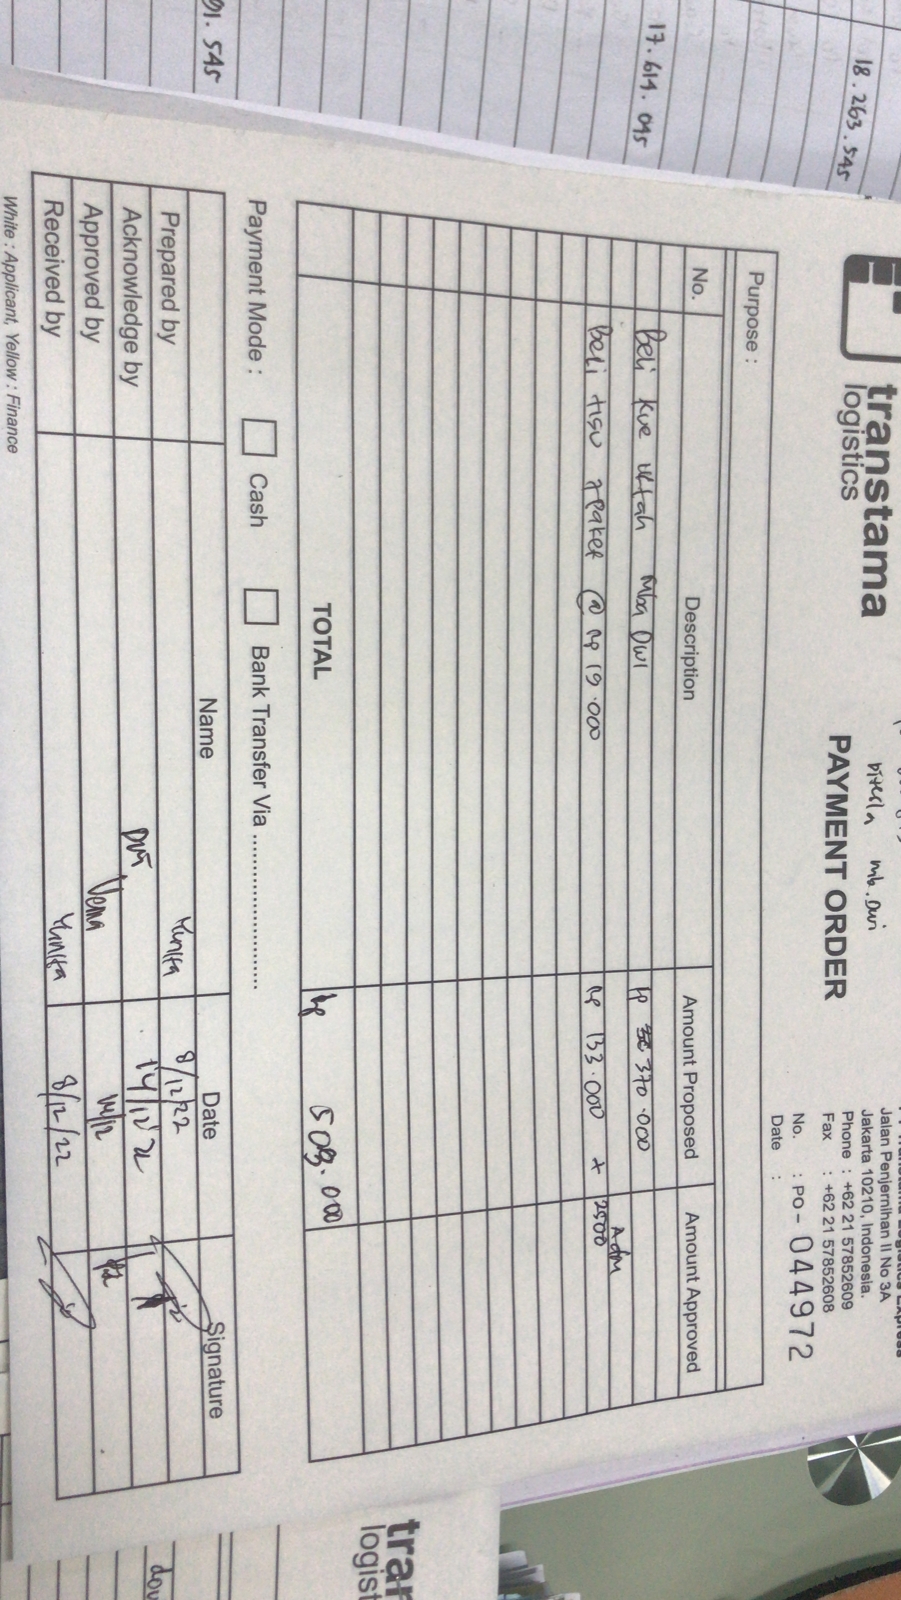 91.545
17.614.095
18.263.545
transtama
logistics
Ditesla mb.Dwi
PAYMENT ORDER
Jalan Penjernihan II No 3A
Jakarta 10210, Indonesia.
Phone : +62 21 57852609
Fax : +62 21 57852608
No. : PO - 044972
Date :
Purpose :
No. Description Amount Proposed Amount Approved
Beli kue ultah Mba Dwi Rp 370.000 Adm
Beli tisu 7paket @ Rp 19.000 Rp 133.000 + 2500
TOTAL Rp 503.000
Payment Mode : Cash Bank Transfer Via ........................
Name Date Signature
Prepared by Yunita 8/12/22
Acknowledge by Dwi 14/12'22
Approved by Vema 14/12
Received by Yunita 8/12/22
White : Applicant, Yellow : Finance
tran
logist
dow